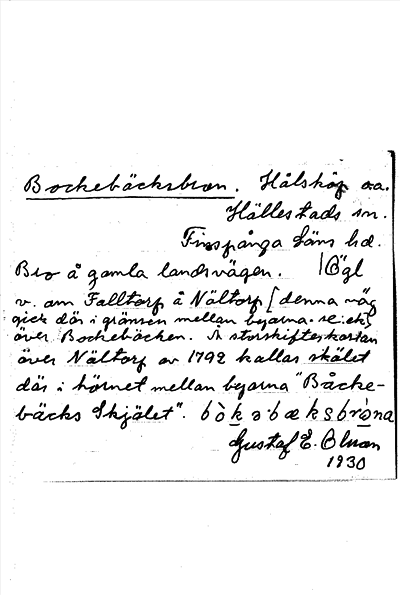 Bockebäcksbron. Hålsköp oa.
Hällestads sn.
Finspånga läns hd.
Bro å gamla landsvägen. Ögl
v. om Falltorp å Nältorp [denna väg
gick där i gränsen mellan byarna. se. ek]
över Bockebäcken. Å storskifteskartan
över Nältorp av 1792 kallas skälet
där i hörnet mellan byarna "Båcke-
bäcks Skjälet". bòkə·bæksbròna
Gustaf E. Olman
1930